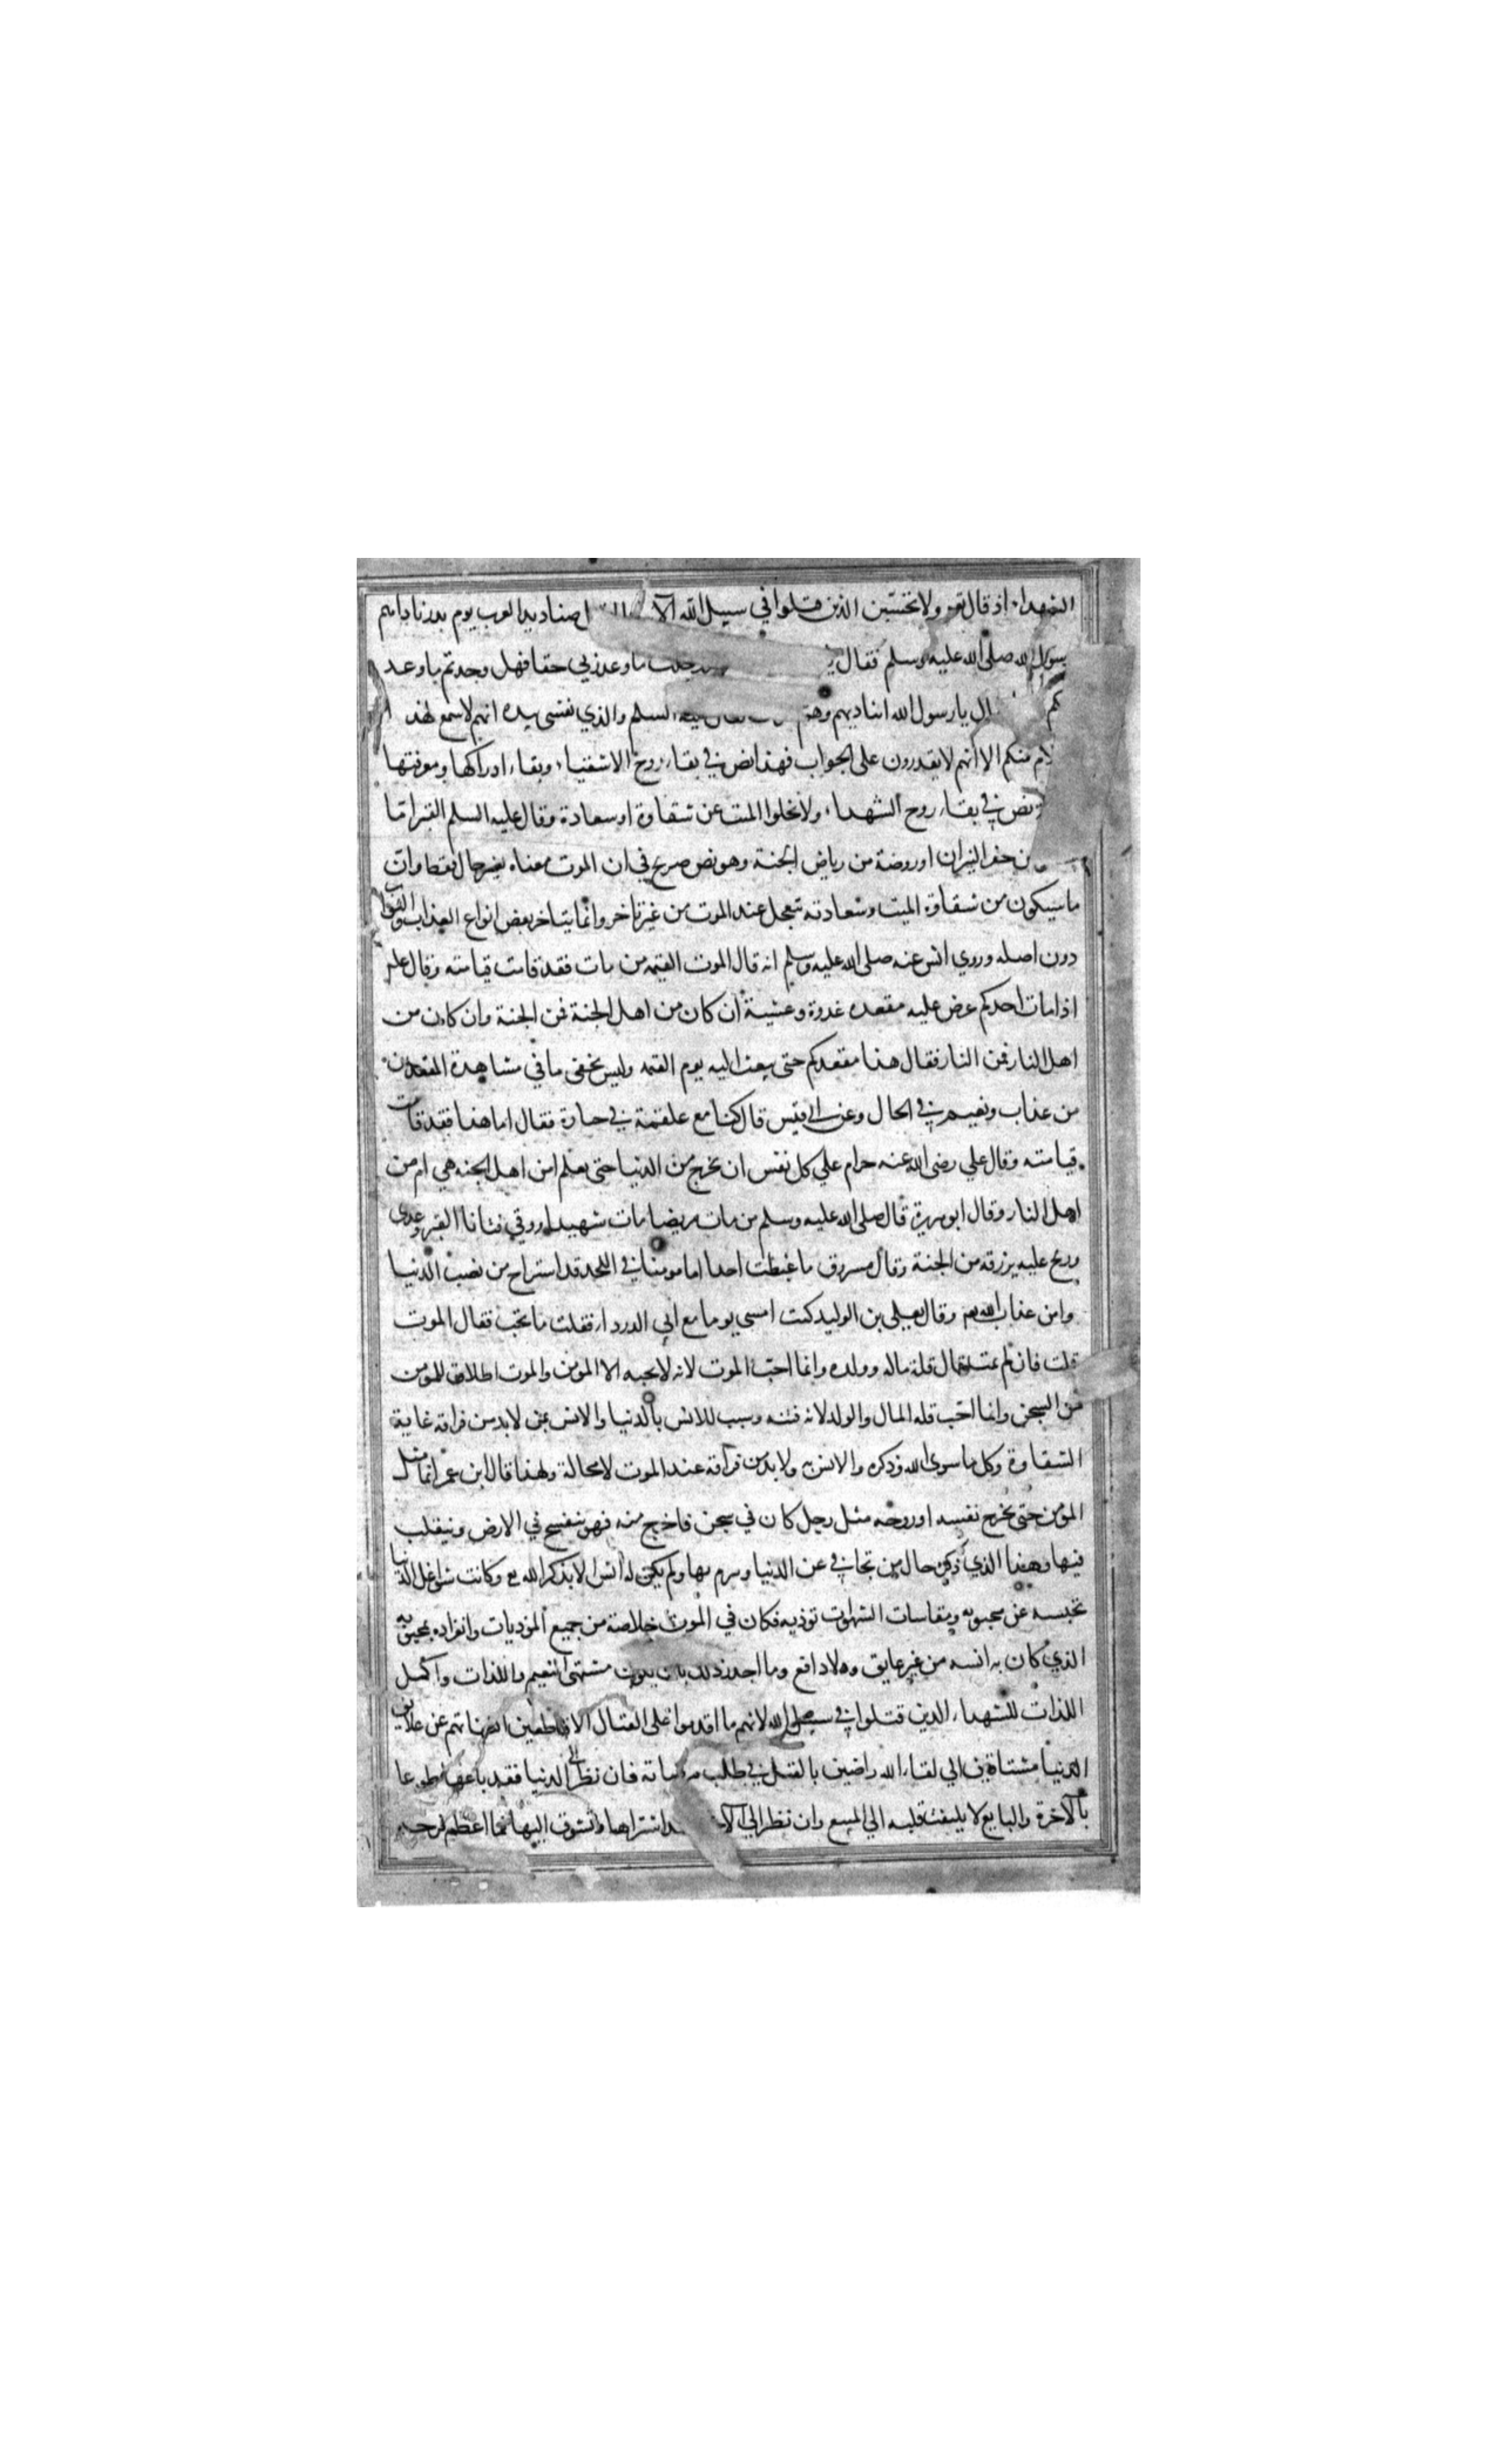 الشهداء اذ قال تع ولا تحسبن الذين قتلوا في سبيل الله الا صناديد العرب يوم بدر ناداهم
رسول الله صلى الله عليه وسلم فقال ما وعدني ربي حقا فهل وجدتم ما وعد
يا رسول الله اتناديهم وهم السلم والذي نفسي بيده انهم لاسمع لهذ
منكم الا انهم لا يقدرون على الجواب فهذا نص في بقاء روح الاشقياء وبقاء ادراكها ومعرفتها
نص في بقاء روح الشهداء ولا يخلوا الميت عن شقاوة او سعادة وقال عليه السلم القبر اما
من حفر النيران او روضة من رياض الجنة وهو نص صريح في ان الموت معناه تغير حال فقط وان
ما سيكون من شقاوة الميت وسعادته تتعجل عند الموت من غير تاخر وانما يتاخر بعض انواع العذاب
دون اصله وروي انس عنه صلى الله عليه وسلم انه قال الموت القيمه من مات فقد قامت قيامته وقال علم
اذا مات احدكم عرض عليه مقعده غدوة وعشية ان كان من اهل الجنة فمن الجنة وان كان من
اهل النار فمن النار فقال هذا مقعدكم حتى يبعث اليه يوم القيمه وليس يخفى ما في مشاهدة المقعدين
من عذاب ونعيم في الحال وعن ابي قيس قال كنا مع علقمة في جنازة فقال اما هذا فقد قامت
قيامته وقال علي رضى الله عنه حرام على كل نفس ان تخرج من الدنيا حتى تعلم امن اهل الجنه هي ام من
اهل النار وقال ابو هريرة قال صلى الله عليه وسلم من مات مريضا مات شهيدا ووقي فتانا القبر وغدى
وريح عليه برزقه من الجنة وقال مسروق ما غبطت احدا اما مومنا في اللحد قد استراح من نصب الدنيا
وامن عذاب الله تع وقال يعلى بن الوليد كنت امسي يوما مع ابي الدرداء فقلت ما تحب فقال الموت
قلت فان لم يمت قال قلة ماله وولده وانما احب الموت لانه لا يحبه الا المومن والموت اطلاق المومن
من السجن وانما احب قله المال والولد لانه فتنه وسبب للانس بالدنيا والانس بمن لا بد من فراقه غاية
الشقاوة وكل ما سوى الله وذكره والانس به ولا بد من فراقه عند الموت لا محالة ولهذا قال ابن عمر انما مثل
المومن حتى تخرج نفسه او روحه مثل رجل كان في سجن فاخرج منه فهو يتفسح في الارض ويتقلب
فيها وهذا الذي ذكره حال من تجافي عن الدنيا وبرم بها ولم يكن له انس الا بذكر الله تع وكانت شواغل الدنيا
تحبسه عن محبوبه ومقاسات الشهوات توذيه فكان في الموت خلاصة من جميع الموذيات وانفراده بمحبوبه
الذي كان به انسه من غير عايق ولا دافع وما اجدر ذلك بان يكون منتهى النعيم واللذات واكمل
اللذات للشهداء الذين قتلوا في سبيل الله لانهم ما اقدموا على القتال الا قاطعين التفاتهم عن علايق
الدنيا مشتاقين الى لقاء الله راضين بالقتل في طلب مرضاته فان نظر الى الدنيا فقد باعها طوعا
بالآخرة والبايع لا يلتفت قلبه الى المبيع وان نظر الى اشتراها وتشوق اليها فما اعظم فرحه